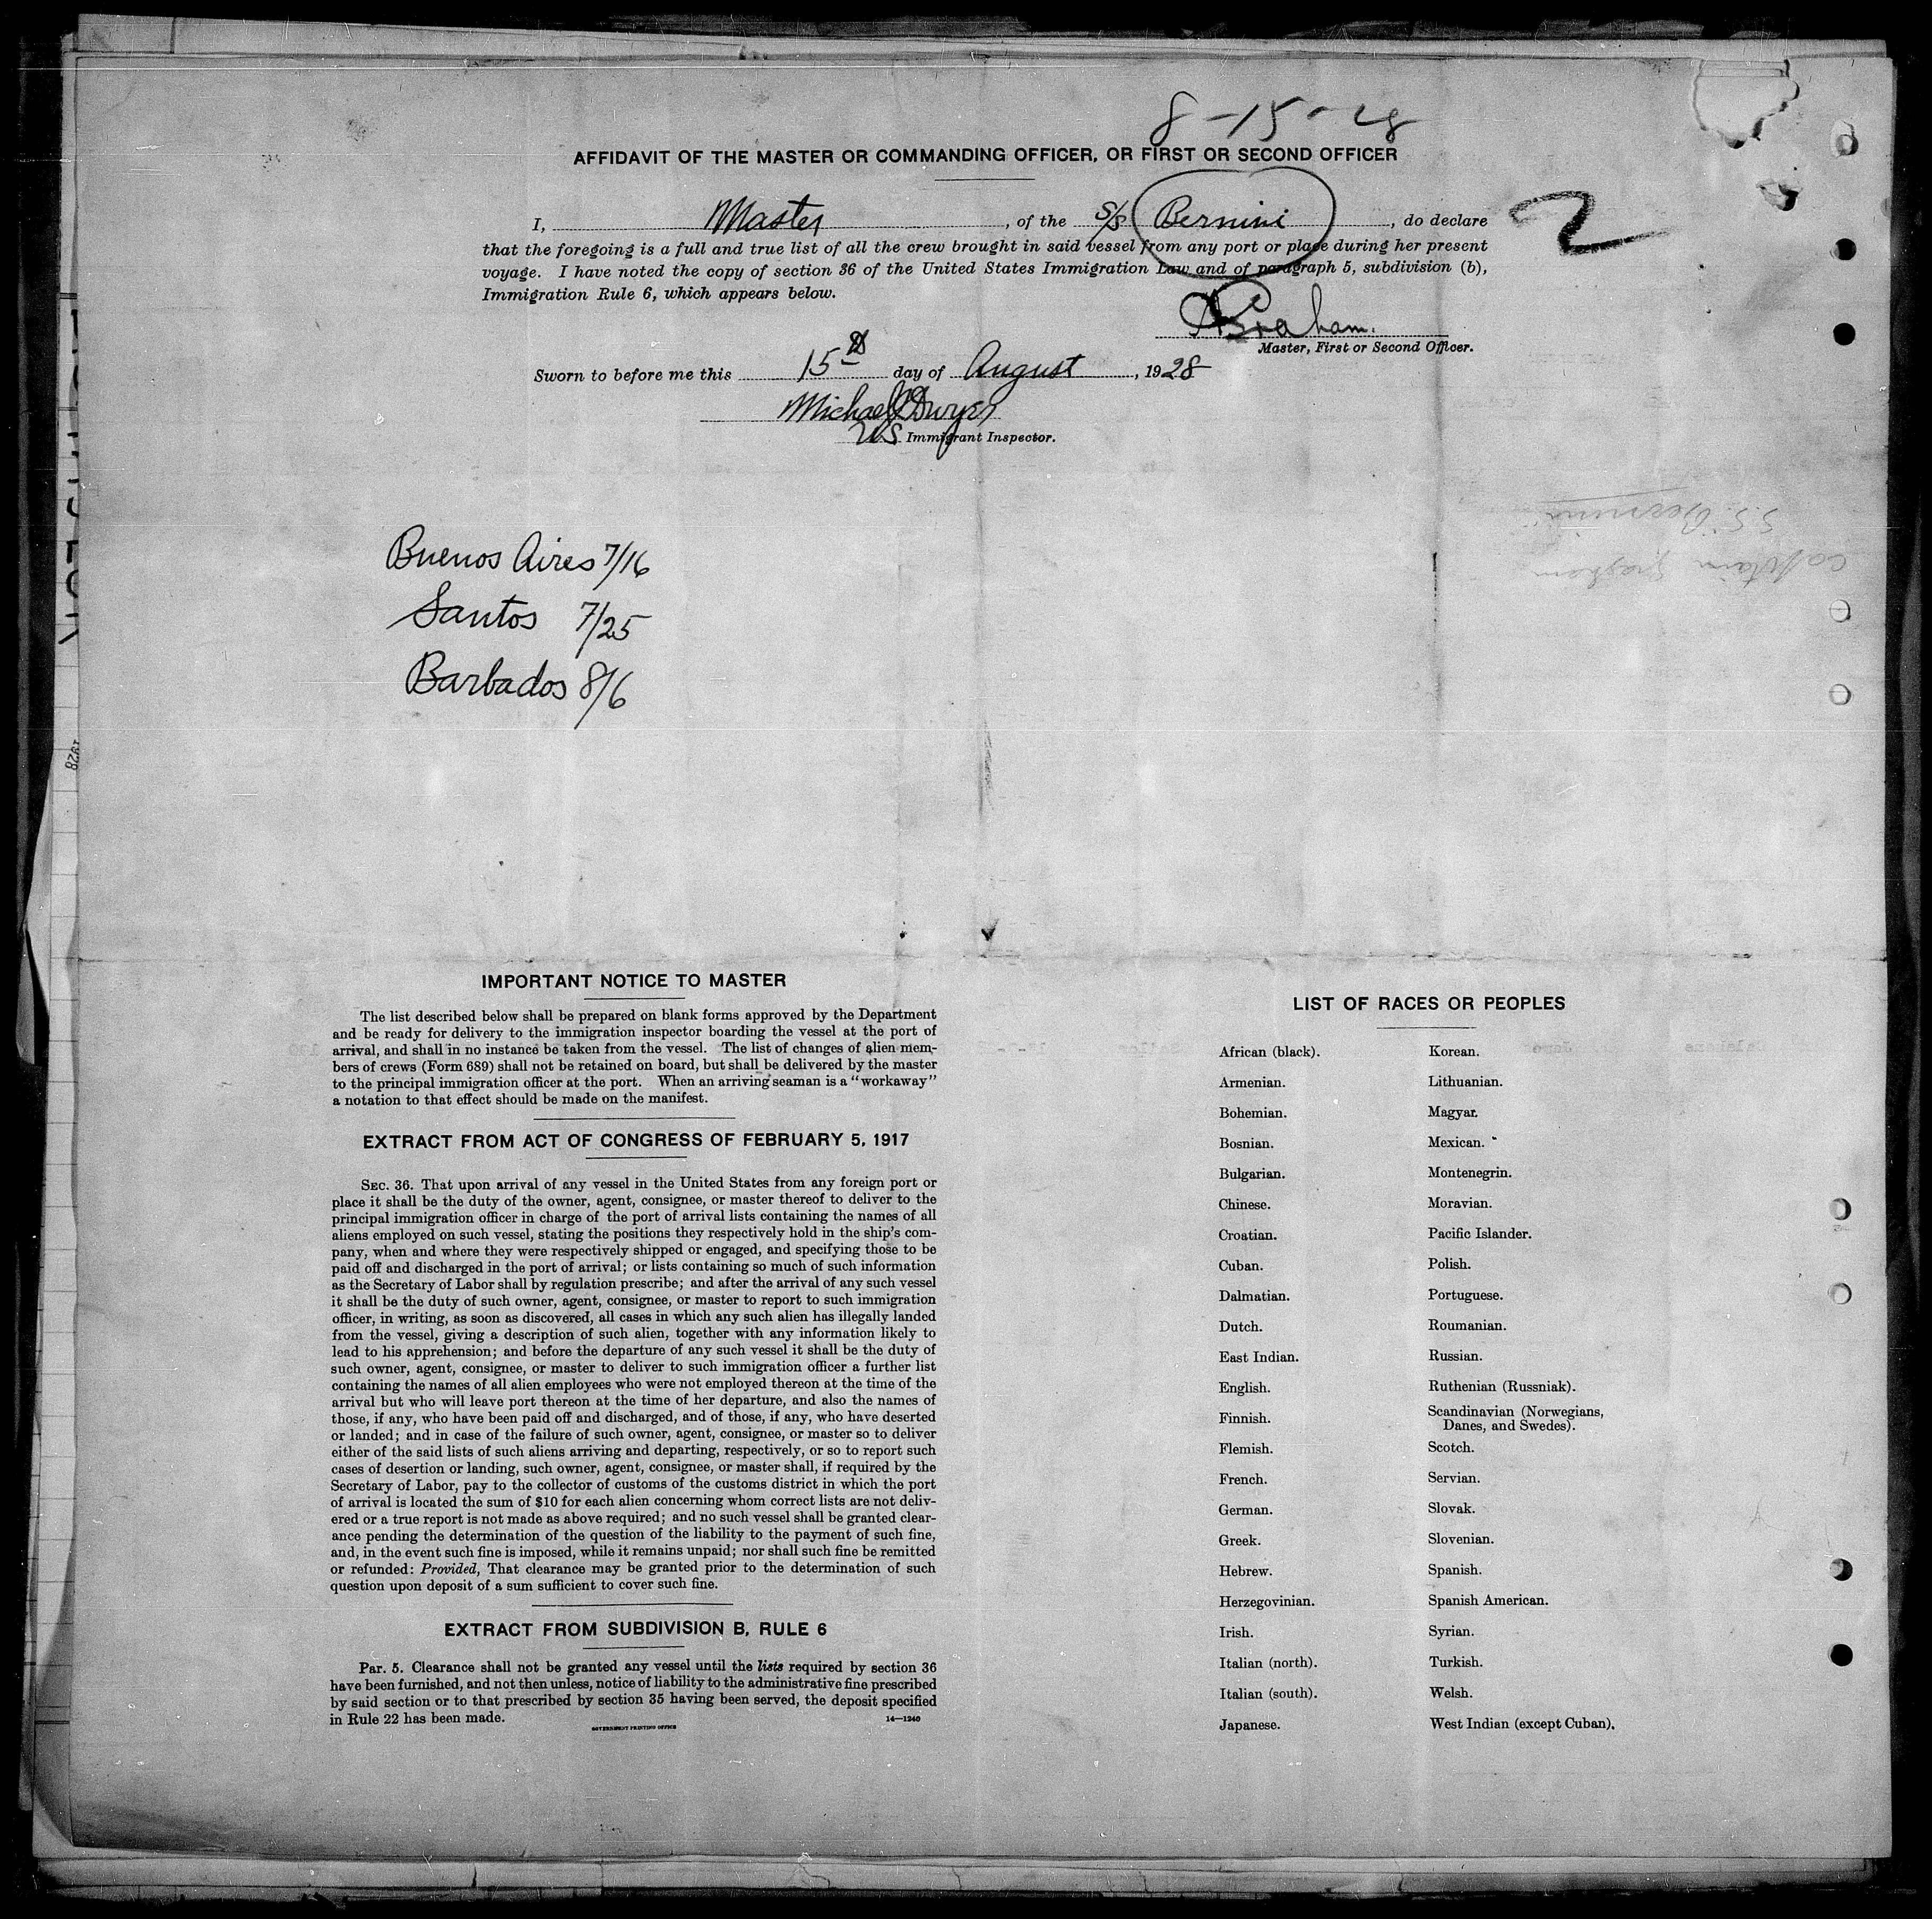 8-15-28
AFFIDAVIT OF THE MASTER OR COMMANDING OFFICER, OR FIRST OR SECOND OFFICER
I, Master, of the S/S Bernini, do declare
2
that the foregoing is a full and true list of all the crew brought in said vessel from any port or place during her present
voyage. I have noted the copy of section 36 of the United States Immigration Law and of paragraph 5, subdivision (b),
Immigration Rule 6, which appears below.
Graham.
Master, First or Second Officer.
Sworn to before me this 15th day of August, 1928
Michael Dwyer
US Immigrant Inspector.
S.S. Bernini
Captain Graham
Buenos Aires 7/16
Santos 7/25
Barbados 8/6
1928
IMPORTANT NOTICE TO MASTER
The list described below shall be prepared on blank forms approved by the Department
and be ready for delivery to the immigration inspector boarding the vessel at the port of
arrival, and shall in no instance be taken from the vessel. The list of changes of alien mem-
bers of crews (Form 689) shall not be retained on board, but shall be delivered by the master
to the principal immigration officer at the port. When an arriving seaman is a "workaway"
a notation to that effect should be made on the manifest.
EXTRACT FROM ACT OF CONGRESS OF FEBRUARY 5, 1917
SEC. 36. That upon arrival of any vessel in the United States from any foreign port or
place it shall be the duty of the owner, agent, consignee, or master thereof to deliver to the
principal immigration officer in charge of the port of arrival lists containing the names of all
aliens employed on such vessel, stating the positions they respectively hold in the ship's com-
pany, when and where they were respectively shipped or engaged, and specifying those to be
paid off and discharged in the port of arrival; or lists containing so much of such information
as the Secretary of Labor shall by regulation prescribe; and after the arrival of any such vessel
it shall be the duty of such owner, agent, consignee, or master to report to such immigration
officer, in writing, as soon as discovered, all cases in which any such alien has illegally landed
from the vessel, giving a description of such alien, together with any information likely to
lead to his apprehension; and before the departure of any such vessel it shall be the duty of
such owner, agent, consignee, or master to deliver to such immigration officer a further list
containing the names of all alien employees who were not employed thereon at the time of the
arrival but who will leave port thereon at the time of her departure, and also the names of
those, if any, who have been paid off and discharged, and of those, if any, who have deserted
or landed; and in case of the failure of such owner, agent, consignee, or master so to deliver
either of the said lists of such aliens arriving and departing, respectively, or so to report such
cases of desertion or landing, such owner, agent, consignee, or master shall, if required by the
Secretary of Labor, pay to the collector of customs of the customs district in which the port
of arrival is located the sum of $10 for each alien concerning whom correct lists are not deliv-
ered or a true report is not made as above required; and no such vessel shall be granted clear-
ance pending the determination of the question of the liability to the payment of such fine,
and, in the event such fine is imposed, while it remains unpaid; nor shall such fine be remitted
or refunded: Provided, That clearance may be granted prior to the determination of such
question upon deposit of a sum sufficient to cover such fine.
EXTRACT FROM SUBDIVISION B, RULE 6
Par. 5. Clearance shall not be granted any vessel until the lists required by section 36
have been furnished, and not then unless, notice of liability to the administrative fine prescribed
by said section or to that prescribed by section 35 having been served, the deposit specified
in Rule 22 has been made.
GOVERNMENT PRINTING OFFICE 14—1240
LIST OF RACES OR PEOPLES
African (black).
Armenian.
Bohemian.
Bosnian.
Bulgarian.
Chinese.
Croatian.
Cuban.
Dalmatian.
Dutch.
East Indian.
English.
Finnish.
Flemish.
French.
German.
Greek.
Hebrew.
Herzegovinian.
Irish.
Italian (north).
Italian (south).
Japanese.
Korean.
Lithuanian.
Magyar.
Mexican.
Montenegrin.
Moravian.
Pacific Islander.
Polish.
Portuguese.
Roumanian.
Russian.
Ruthenian (Russniak).
Scandinavian (Norwegians,
Danes, and Swedes).
Scotch.
Servian.
Slovak.
Slovenian.
Spanish.
Spanish American.
Syrian.
Turkish.
Welsh.
West Indian (except Cuban).